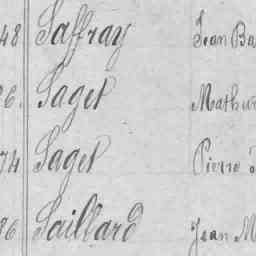 48 Saffray Jean Ba
26. Saget Mathur
74 Saget Pierre
86. Saillard Jean M